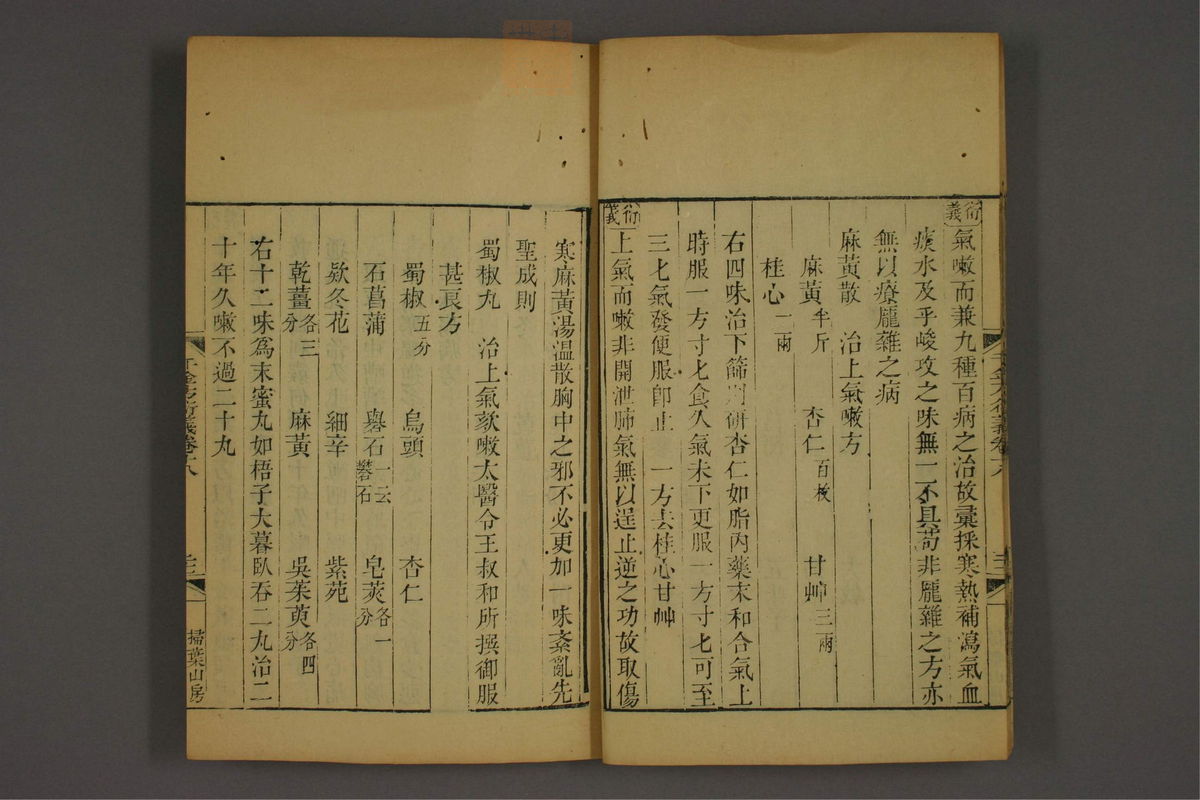 衍義
氣嗽而兼九種百病之治故彚採寒熱補瀉氣血
痰水及乎峻攻之味無一不具苟非龐雜之方亦
無以療龐雜之病
麻黃散　治上氣嗽方
麻黃半斤　杏仁百枚　甘艸三兩
桂心二兩
右四味治下篩別研杏仁如脂內藥末和合氣上
時服一方寸匕食久氣未下更服一方寸匕可至
三匕氣發便服卽止　一方去桂心甘艸
衍義
上氣而嗽非開泄肺氣無以逞止逆之功故取傷
寒麻黃湯溫散胸中之邪不必更加一味紊亂先
聖成則
蜀椒丸　治上氣欬嗽太醫令王叔和所撰御服
甚良方
蜀椒五分　烏頭　杏仁
石菖蒲　礜石一云礬石　皂莢各一分
欵冬花　細辛　紫菀
乾薑各三分　麻黃　吳茱萸各四分
右十二味爲末蜜丸如梧子大暮臥吞二丸治二
十年久嗽不過二十丸
千金方衍義卷十八
掃葉山房